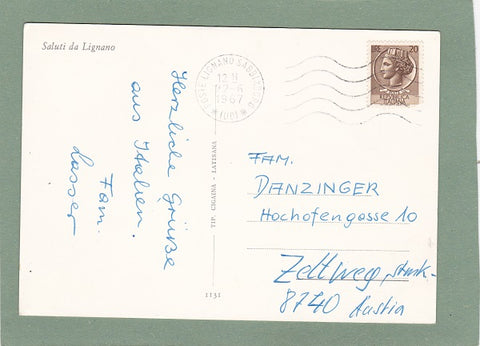 Saluti da Lignano
Herzliche Grüße
aus Italien.
Fam.
Lasser
TIP. CIGAINA - LATISANA
1131
POSTE LIGNANO SABBIADORO
12-6
1967
(UD)
20
FAM.
DANZINGER
Hochofengasse 10
Zeltweg,
8740 Austria